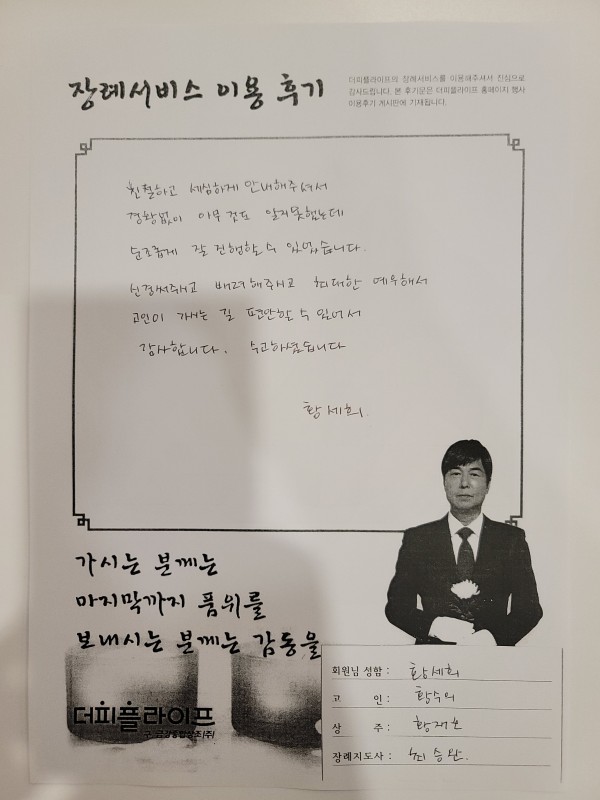 장례서비스 이용 후기
더피플라이프의 장례서비스를 이용해주셔서 진심으로
감사드립니다. 본 후기문은 더피플라이프 홈페이지 행사
이용후기 게시판에 기재됩니다.
친절하고 세심하게 안내해주셔서
경황없이 아무 것도 알지못했는데
순조롭게 잘 진행할 수 있었습니다.
신경써주시고 배려해주시고 최대한 예우해서
고인이 가시는 길 편안할 수 있어서
감사합니다. 수고하셨습니다
황세희.
가시는 분께는
마지막까지 품위를
보내시는 분께는 감동을
더피플라이프
구 금강종합상조(주)
회원님 성함 : 황세희
고 인 : 황수의
상 주 :
장례지도사 : 최승완.